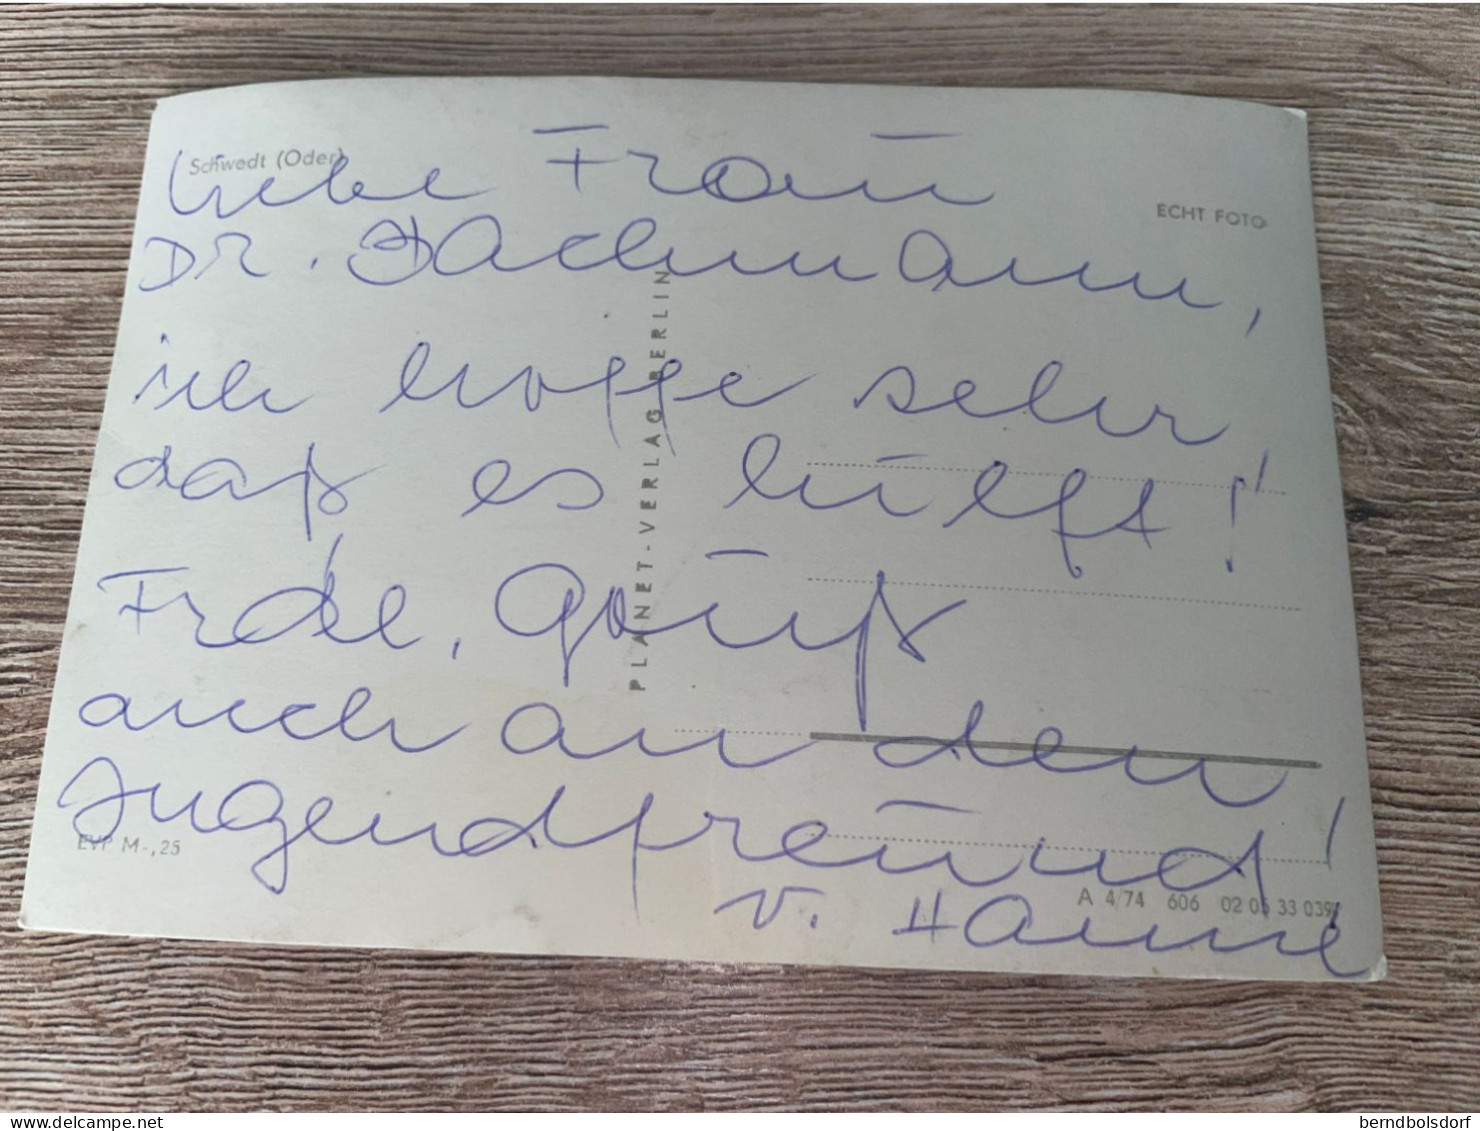 Schwedt (Oder)
ECHT FOTO
Liebe Frau
Dr. Bachmann,
ich hoffe sehr
daß es hilft!
Frdl. Gruß
auch an den
Jugendfreund!
v. Hanne
PLANET-VERLAG BERLIN
EVP M-,25
A 4/74 606 02 05 33 039
delcampe.net
berndbolsdorf